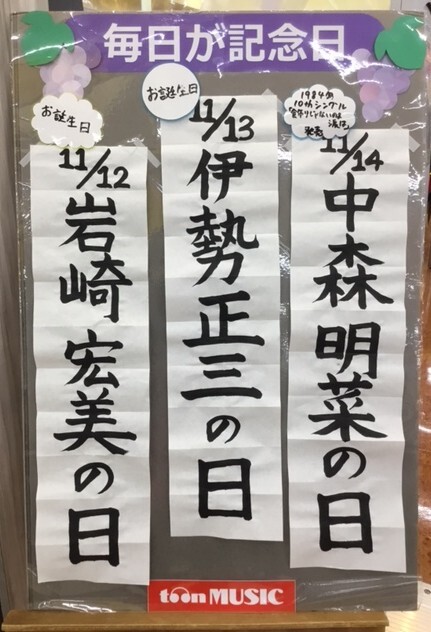 毎日が記念日
1984年
10thシングル
「飾りじゃないのよ
涙は」
発表
11/14
中森明菜の日
お誕生日
11/13
伊勢正三の日
お誕生日
11/12
岩崎宏美の日
toon MUSIC